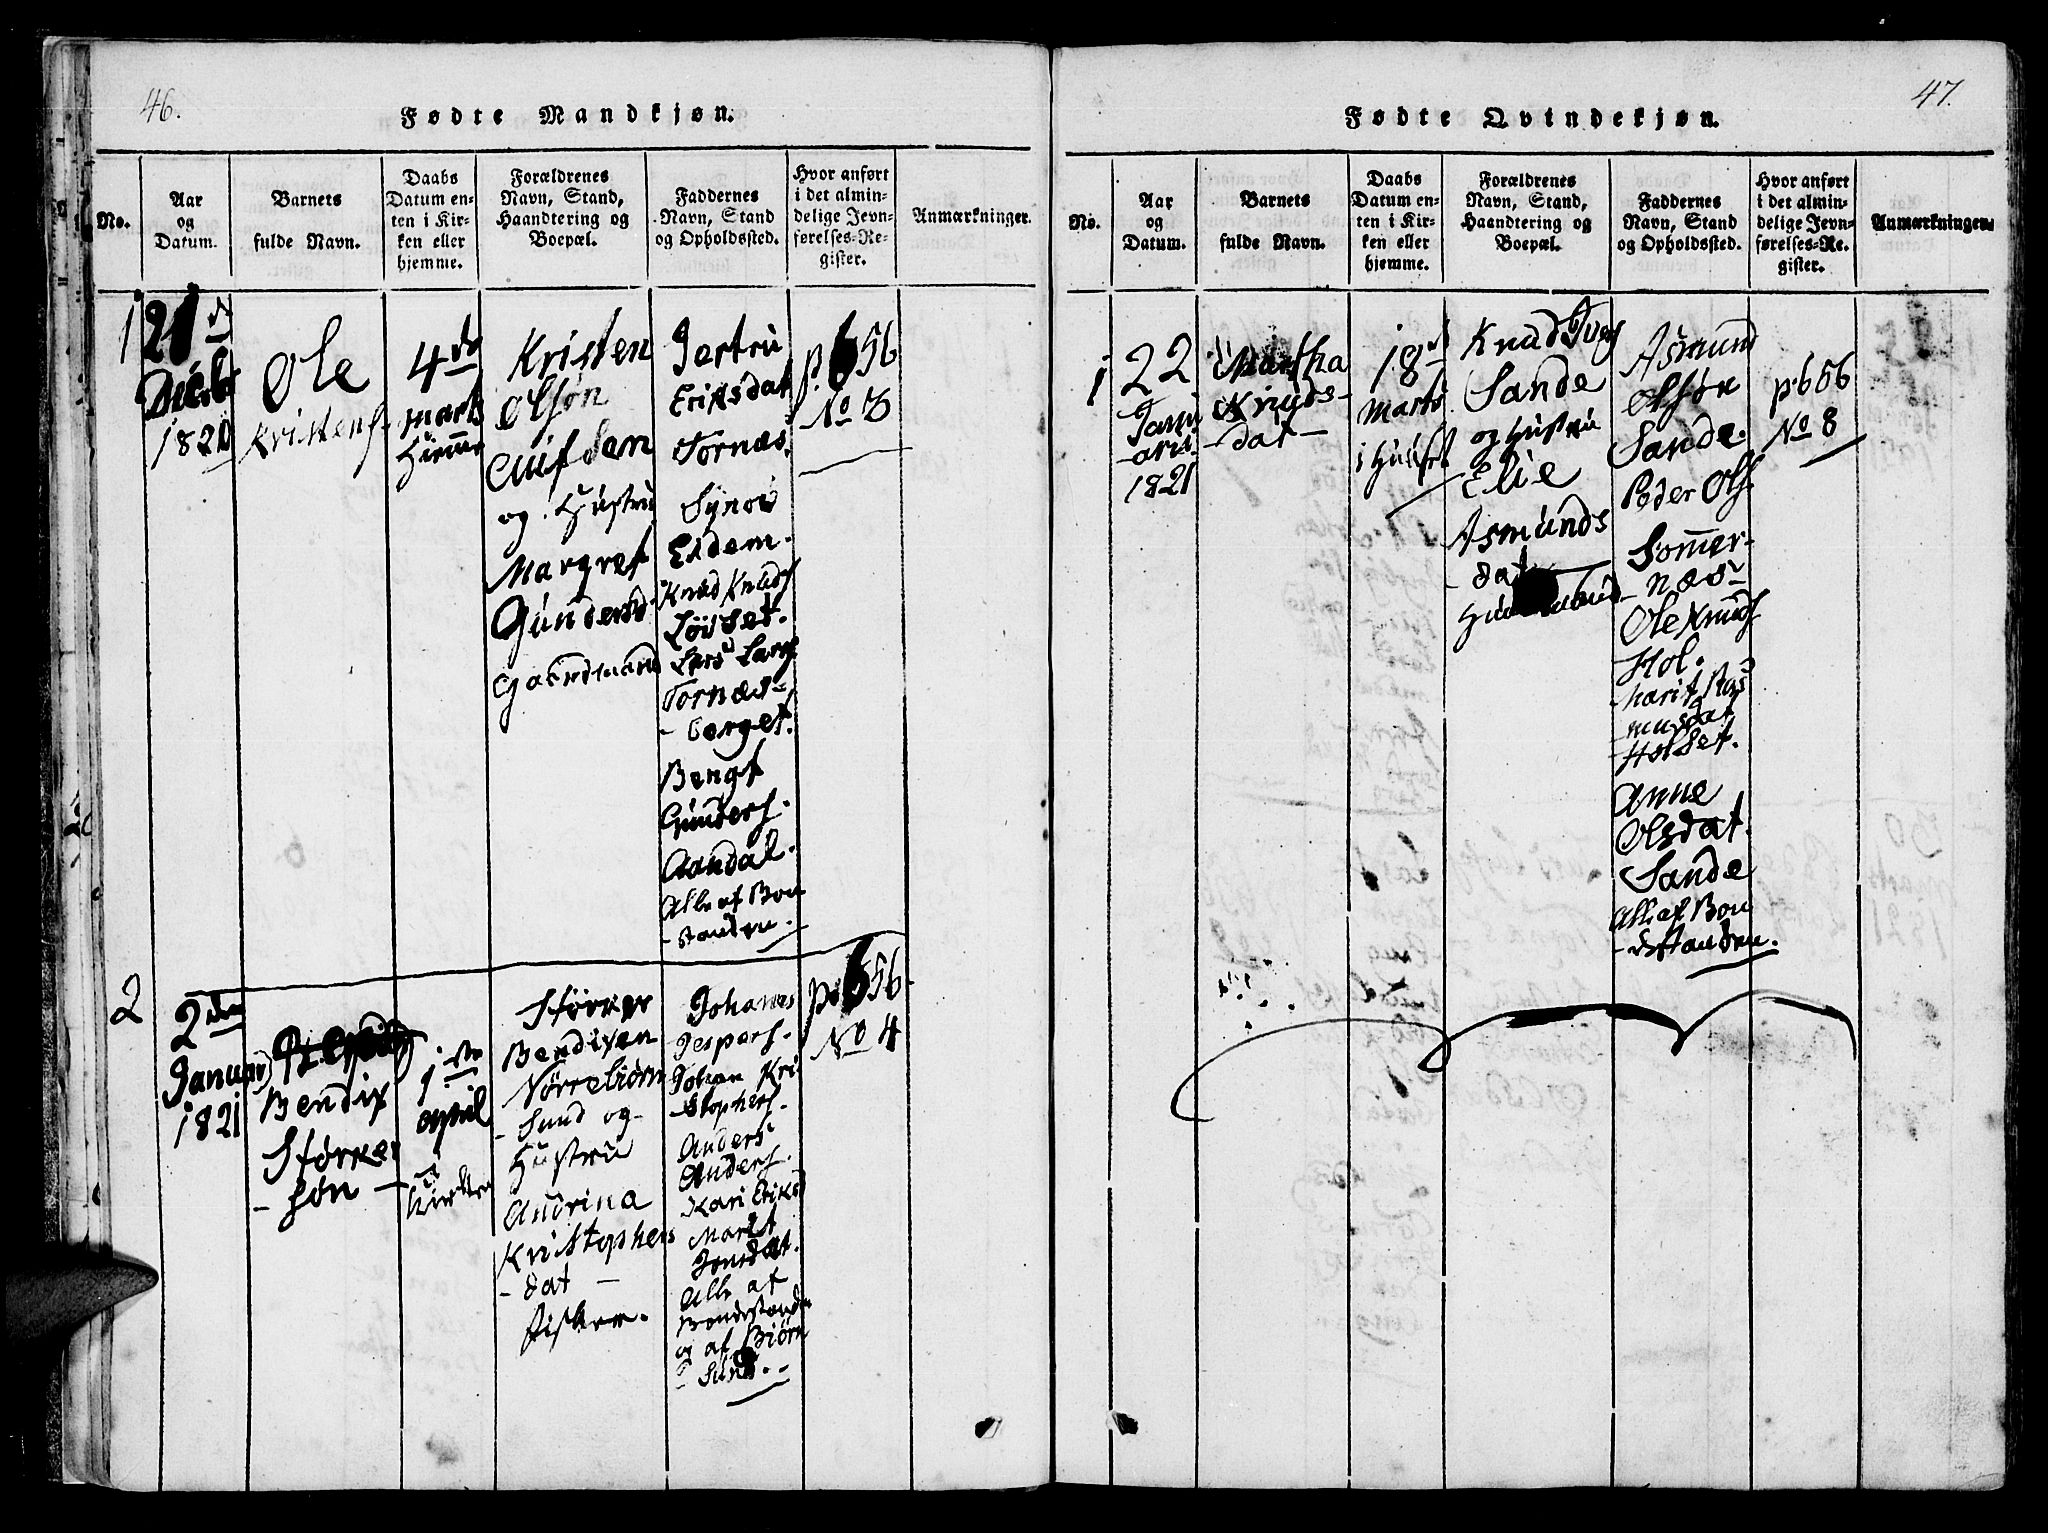 46.
Fødte Mandkjøn.
No.
Aar
og
Datum.
Barnets
fulde Navn.
Daabs
Datum en-
ten i Kir-
ken eller
hjemme.
Forældrenes
Navn, Stand,
Haandtering og
Boepæl.
Faddernes
Navn, Stand
og Opholdssted.
Hvor anført
i det almin-
delige Jevn-
førelses-Re-
gister.
Anmærkninger.
1
1820
Ole
Kristens.
4de
marts
Hiemme
Kristen
Olsøn
og Hustru
Margret
Gundersd.
Gaardmand
Jertru
Eriksdat
Tornæs.
Synov
Eidem.
Knud Knuds.
Løvset.
Lars Lars.
Tornæs-
-berget.
Bengt
Gunders.
Aandal.
Alle af Bon
-standen.
p. 656
No 3
2
2den
Januar
1821
Bendix
Størker
-søn-
1ste
april
i
Kirken
Størker
Bendixen
Nørrebiørn
-sund og
Hustru
Andrina
Kristophers
-dat-
fisker.
Johanes
Jespers.
Johan Kri
-stophers.
Anders
Anders.
Kari Eriksd
Marit
Jonsdat.
Alle af
Bondestanden
og af Biørn
-sund.-
p. 656
No 4
47.
Fødte Qvindekjøn.
No.
Aar
og
Datum.
Barnets
fulde Navn.
Daabs
Datum en-
ten i Kir-
ken eller
hjemme.
Forældrenes
Navn, Stand,
Haandtering og
Boepæl.
Faddernes
Navn, Stand
og Opholdssted.
Hvor anført
i det almin-
delige Jevn-
førelses-Re-
gister.
Anmærkninger.
1
22
Janu
-arii
1821
Martha
Knuds-
-dat-
18de
Marts
i Huuset
Knud
Sande
og Hustru
Elie
Asmunds
-dat
Asmund
Olsøn
Sande.
Peder Ols.
Sommer-
-næs
Ole Knuds.
Hol.
Marit Ras
musdat
Holset.
Anne
Olsdat.
Sande
Alle af Bon
-destanden.
p 656
No 8